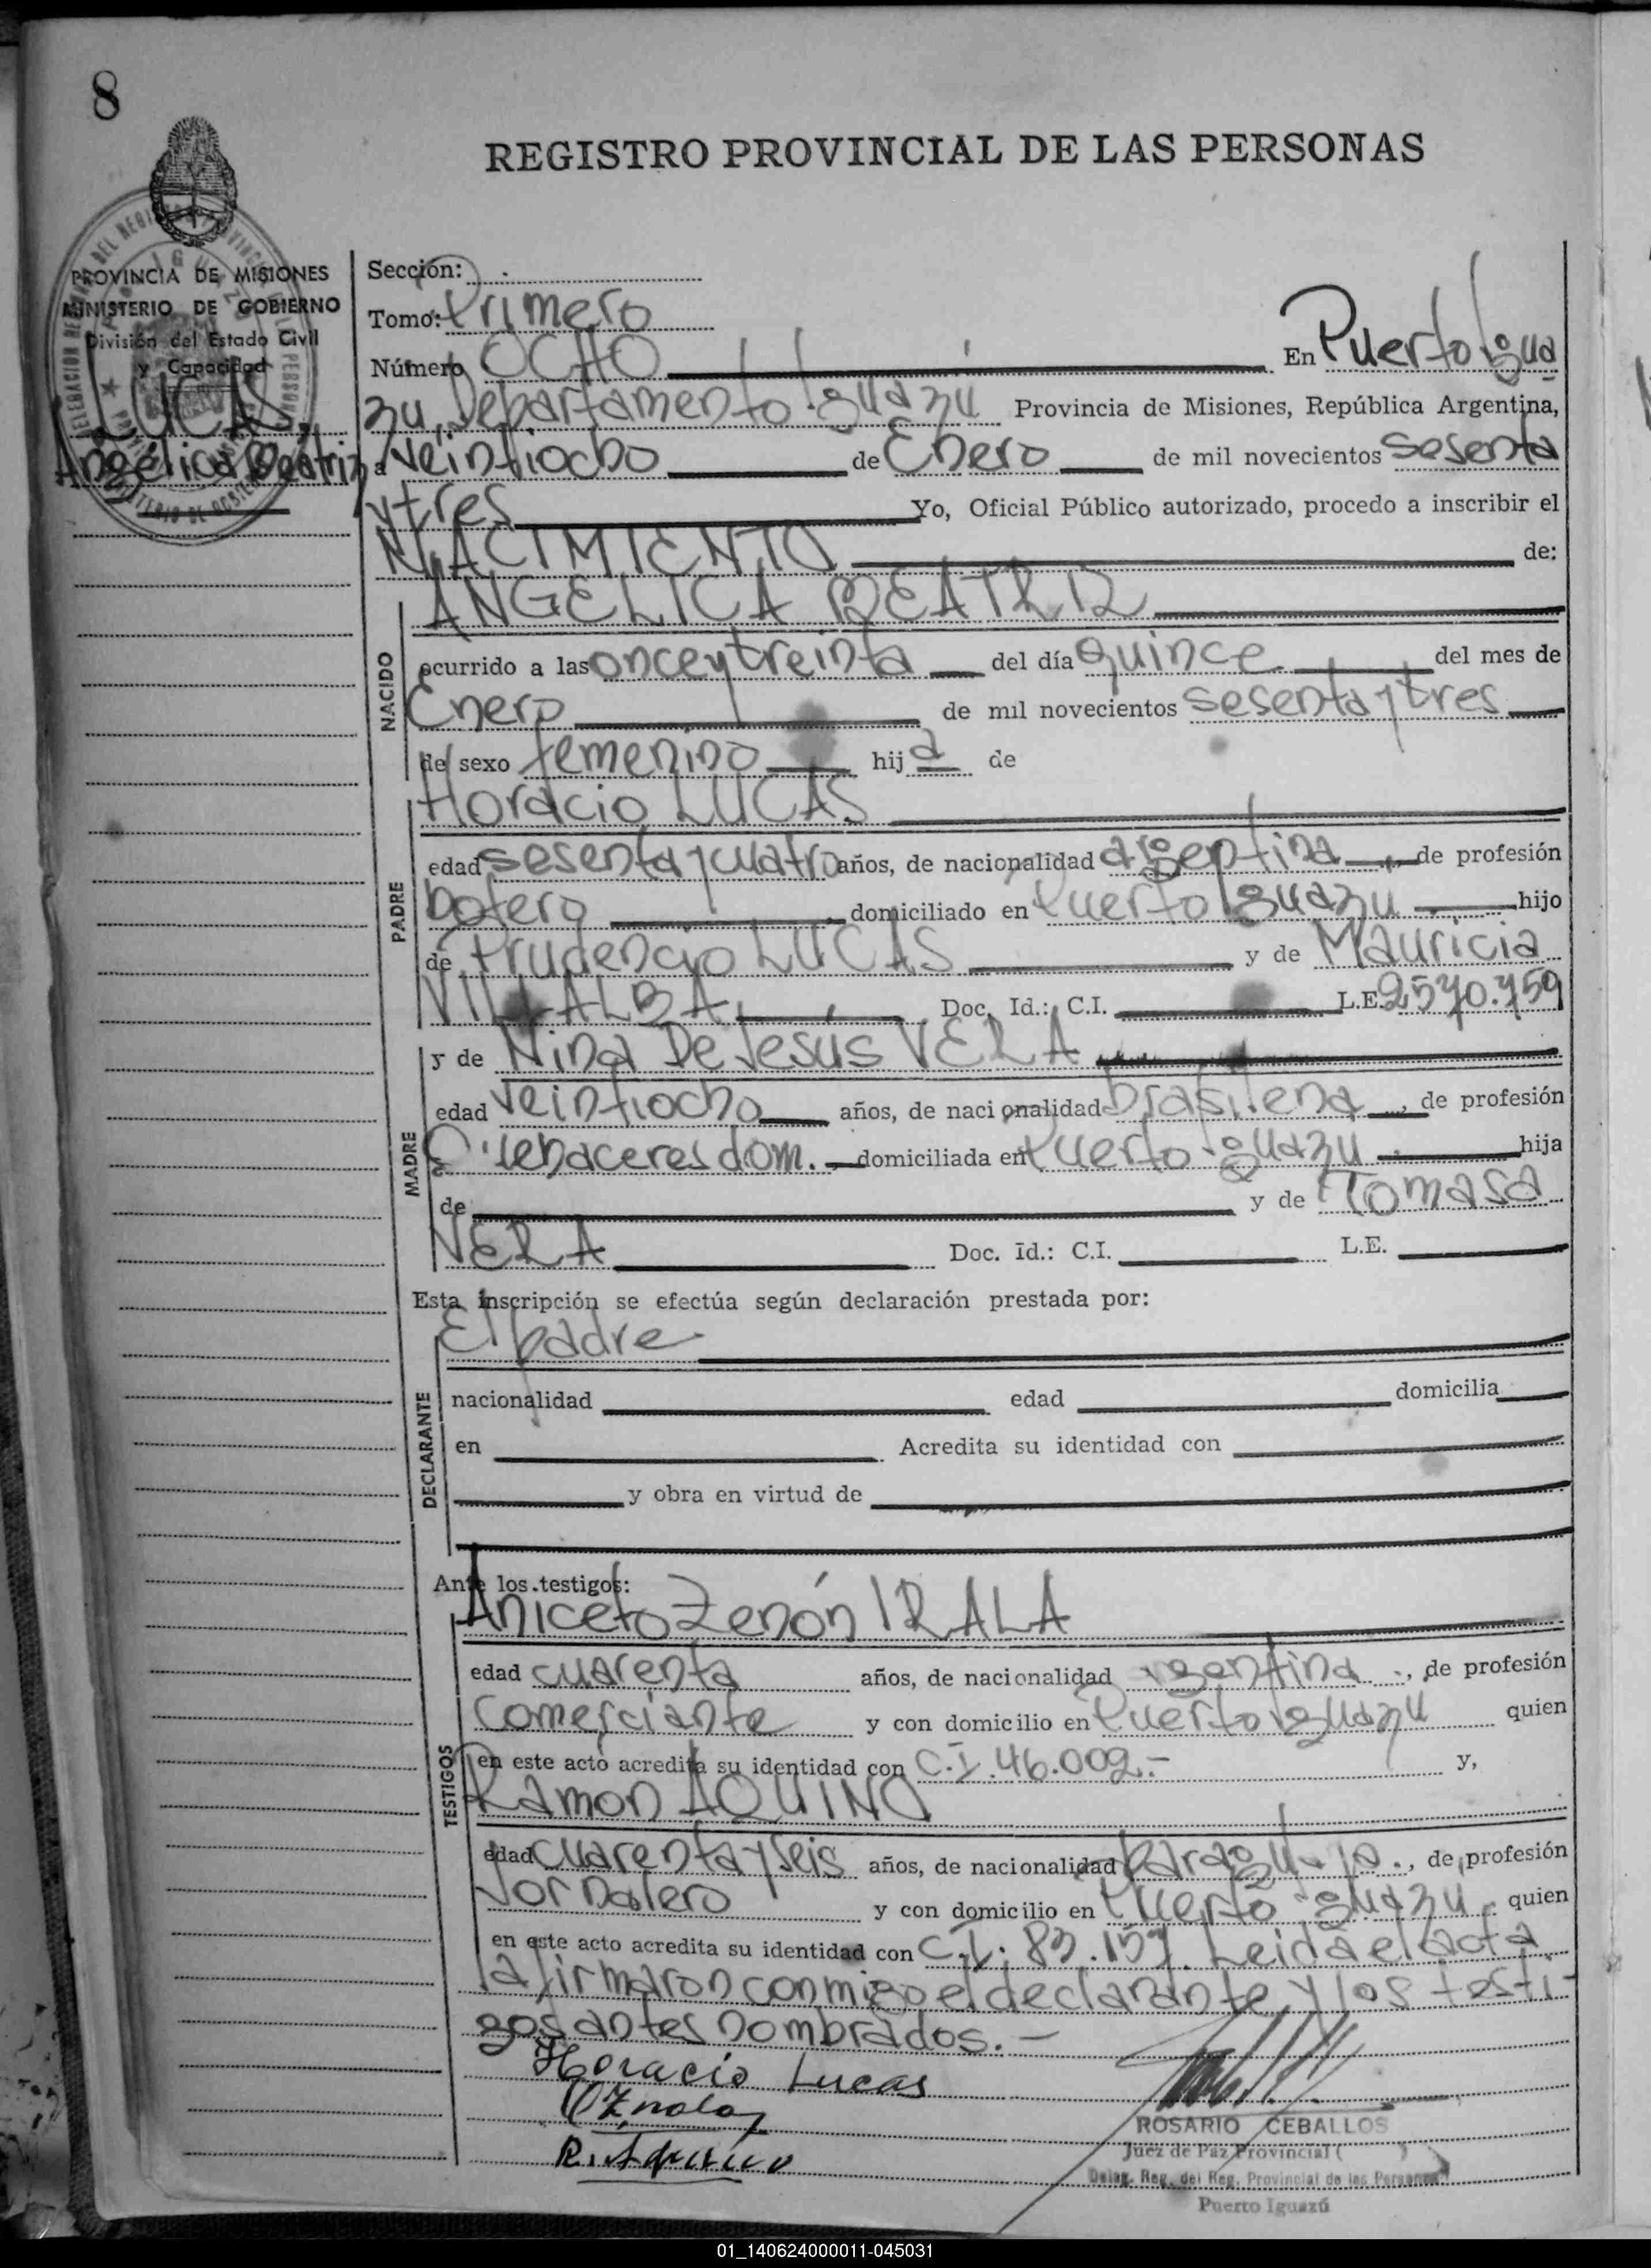 8
REGISTRO PROVINCIAL DE LAS PERSONAS
PROVINCIA DE MISIONES
MINISTERIO DE GOBIERNO
División del Estado Civil
y Capacidad
LUCAS,
Angélica Beatriz
Sección:
Tomo: Primero
Número OCHO En Puerto Igua
zu, Departamento Iguazu Provincia de Misiones, República Argentina,
a veintiocho de Enero de mil novecientos sesenta
y tres Yo, Oficial Público autorizado, procedo a inscribir el
NACIMIENTO de:
ANGELICA BEATRIZ
NACIDO
ocurrido a las once y treinta del día quince del mes de
Enero de mil novecientos sesenta y tres
de sexo femenino hij a de
PADRE
Horacio LUCAS
edad sesenta y cuatro años, de nacionalidad argentina, de profesión
botero, domiciliado en Puerto Iguazu hijo
de Prudencio LUCAS y de Mauricia
VILLALBA, Doc. Id.: C.I. L.E. 2570.759
MADRE
y de Nina De Jesús VERA
edad veintiocho años, de nacionalidad brasilena, de profesión
Quehaceres dom. domiciliada en Puerto Iguazu hija
de y de Tomasa
VERA Doc. Id.: C.I. L.E.
Esta inscripción se efectúa según declaración prestada por:
DECLARANTE
El padre
nacionalidad edad domicilia
en Acredita su identidad con
y obra en virtud de
Ante los testigos:
TESTIGOS
Aniceto Zenón IRALA
edad cuarenta años, de nacionalidad argentina, de profesión
Comerciante y con domicilio en Puerto Iguazu quien
en este acto acredita su identidad con C.I. 46.002.- y,
Ramon AQUINO
edad cuarenta y seis años, de nacionalidad paraguayo, de profesión
Jornalero y con domicilio en Puerto Iguazu, quien
en este acto acredita su identidad con C.I. 83.157. Leida el acta
la firmaron conmigo el declarante y los testi-
gos antes nombrados.-
Horacio Lucas
R. Aquino
ROSARIO CEBALLOS
Juez de Paz Provincial
Deleg. Reg. del Reg. Provincial de las Personas
Puerto Iguazú
01_140624000011-045031